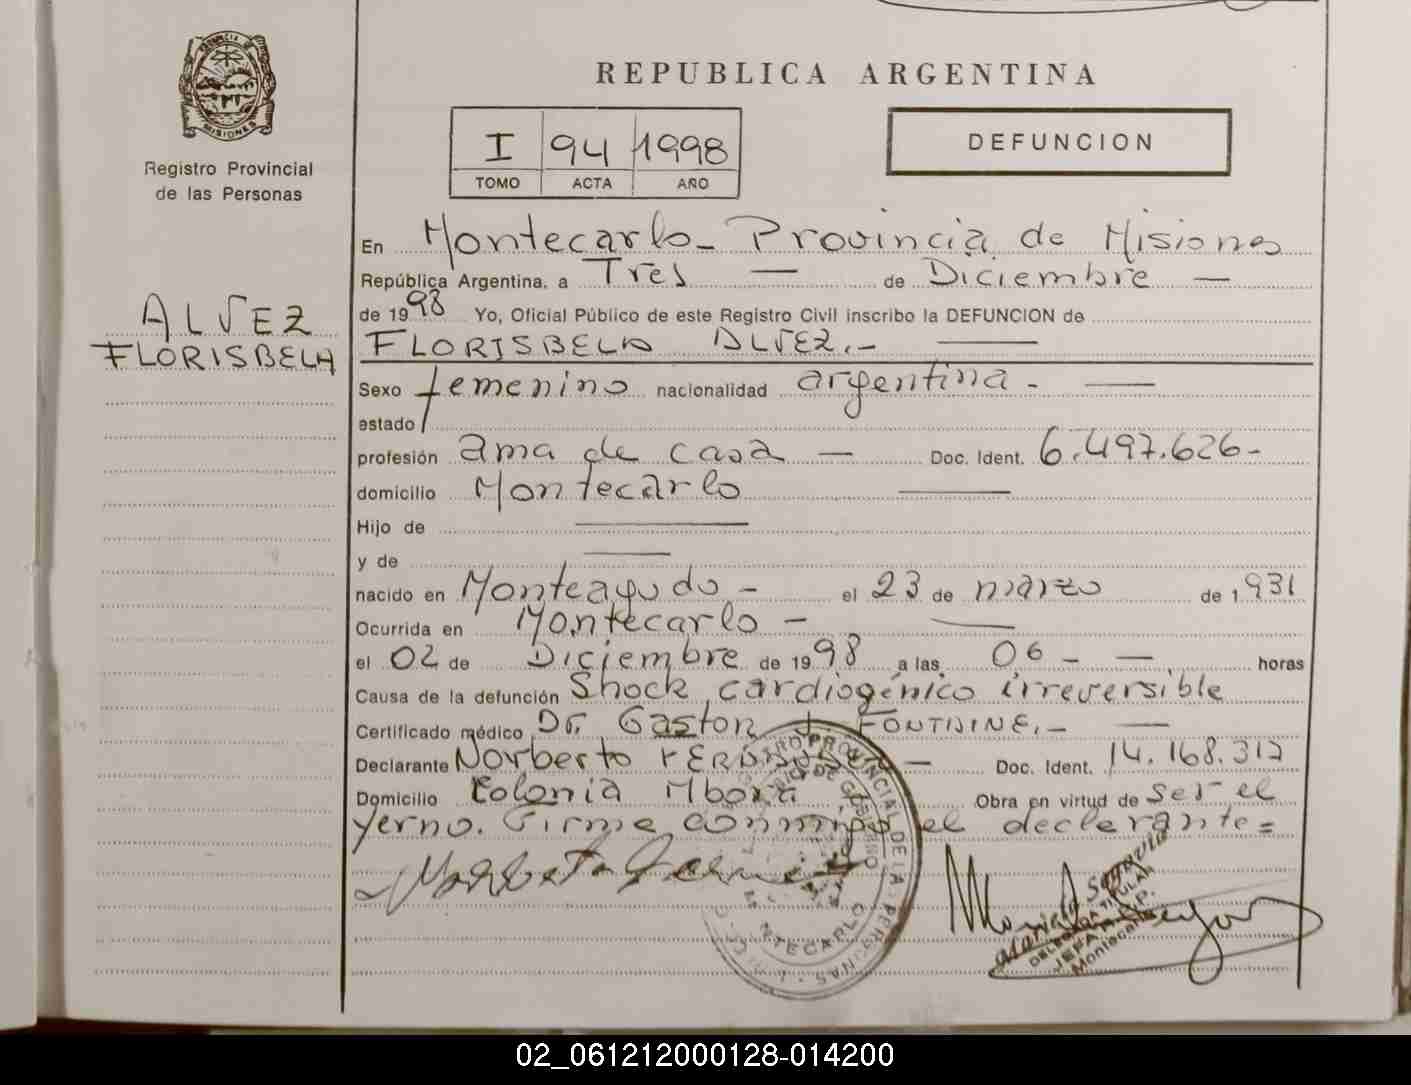 REPUBLICA ARGENTINA
PROVINCIA DE
MISIONES
Registro Provincial
de las Personas
I 94 1998
TOMO ACTA AÑO
DEFUNCION
En Montecarlo - Provincia de Misiones
República Argentina, a Tres — de Diciembre —
de 1998 Yo, Oficial Público de este Registro Civil inscribo la DEFUNCION de
ALVEZ
FLORISBELA
FLORISBELA ALVEZ.- —
Sexo femenino nacionalidad argentina - —
estado
profesión ama de casa — Doc. Ident. 6.497.626-
domicilio Montecarlo —
Hijo de —
y de —
nacido en Monteagudo - el 23 de marzo de 1931
Ocurrida en Montecarlo - —
el 02 de Diciembre de 1998 a las 06 - — horas
Causa de la defunción Shock cardiogénico irreversible
Certificado médico Dr. Gaston J FONTAINE.- —
Declarante Norberto — Doc. Ident. 14.168.317
Domicilio Colonia Mbora Obra en virtud de ser el
yerno. Firma conmigo el declarante=
REGISTRO PROVINCIAL DE LAS PERSONAS
MONTECARLO
DELEGADA TITULAR
JEFA R.P.P.
Montecarlo
02_061212000128-014200